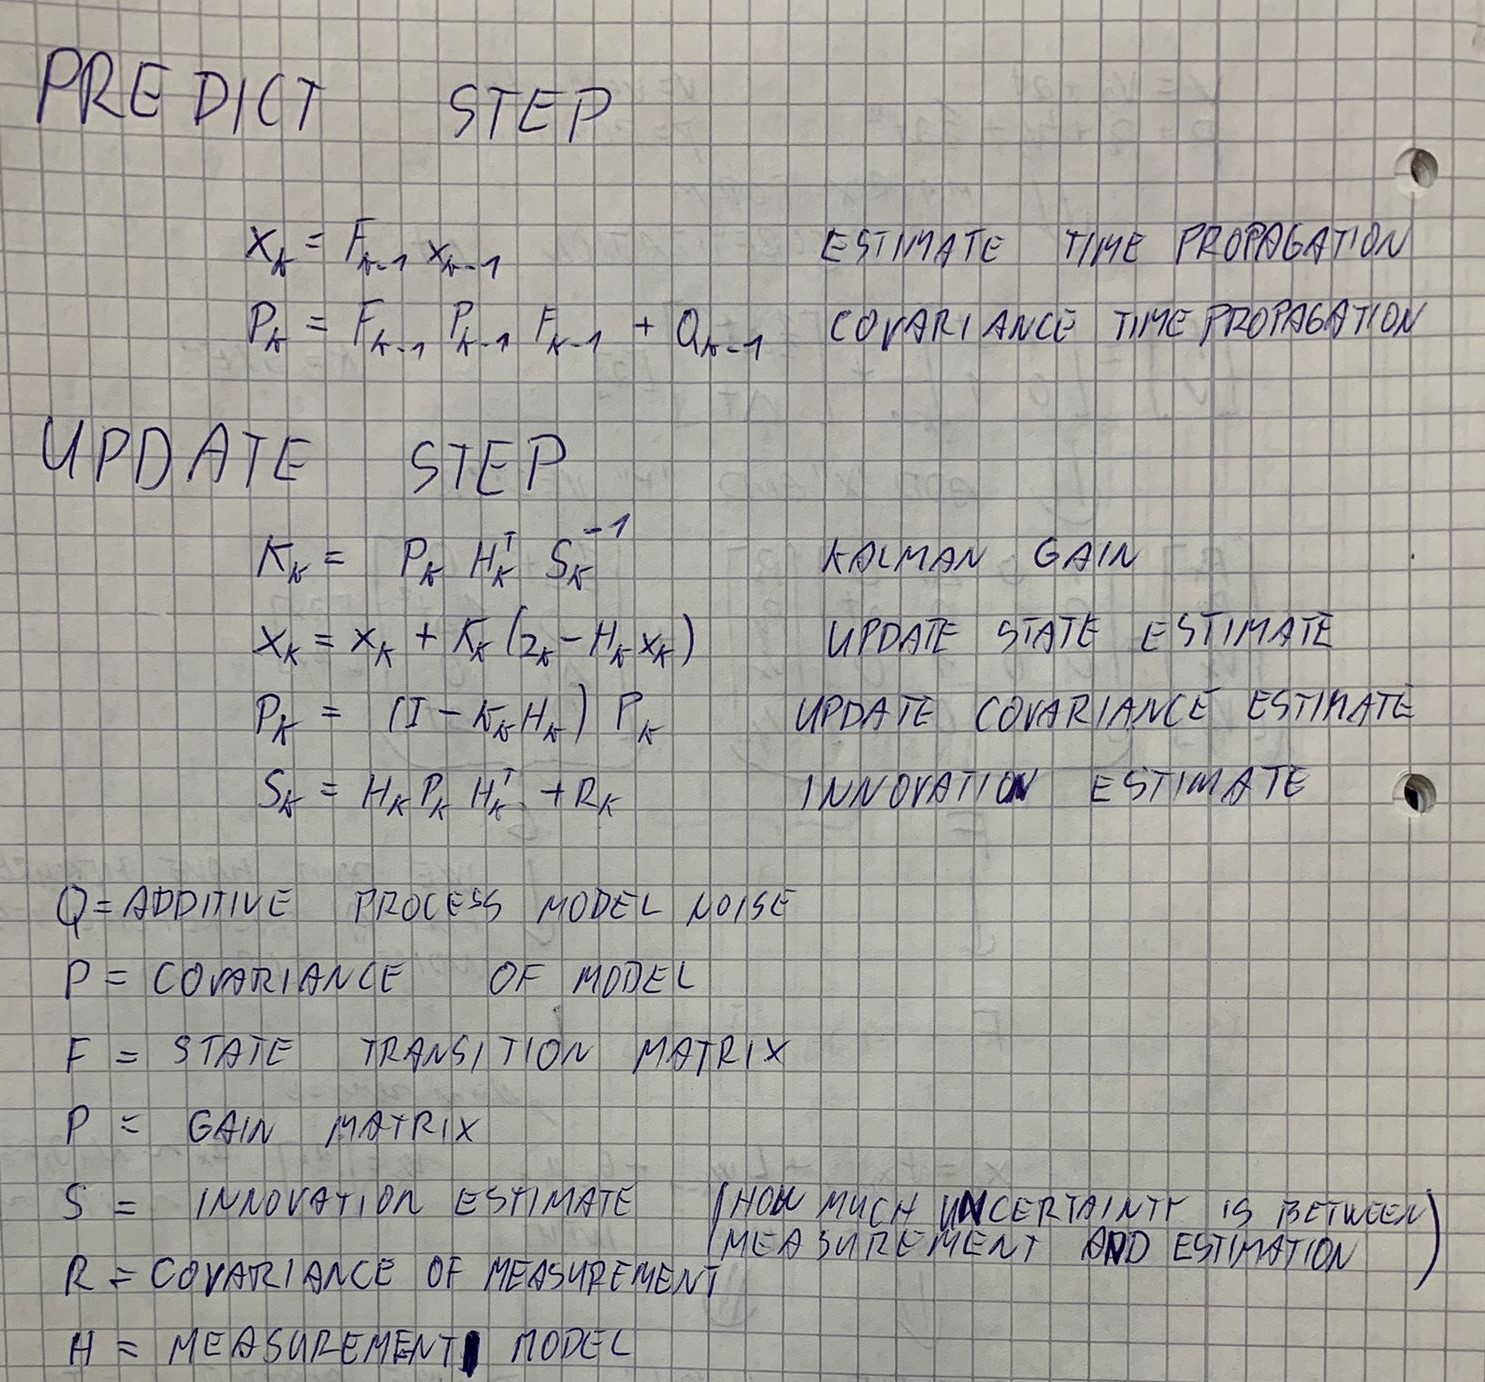 PREDICT STEP
x_k = F_{k-1} x_{k-1} ESTIMATE TIME PROPAGATION
P_k = F_{k-1} P_{k-1} F_{k-1} + Q_{k-1} COVARIANCE TIME PROPAGATION
UPDATE STEP
K_k = P_k H_k^T S_k^{-1} KALMAN GAIN
x_k = x_k + K_k (z_k - H_k x_k) UPDATE STATE ESTIMATE
P_k = (I - K_k H_k) P_k UPDATE COVARIANCE ESTIMATE
S_k = H_k P_k H_k^T + R_k INNOVATION ESTIMATE
Q = ADDITIVE PROCESS MODEL NOISE
P = COVARIANCE OF MODEL
F = STATE TRANSITION MATRIX
P = GAIN MATRIX
S = INNOVATION ESTIMATE (HOW MUCH UNCERTAINTY IS BETWEEN
MEASUREMENT AND ESTIMATION)
R = COVARIANCE OF MEASUREMENT
H = MEASUREMENT MODEL